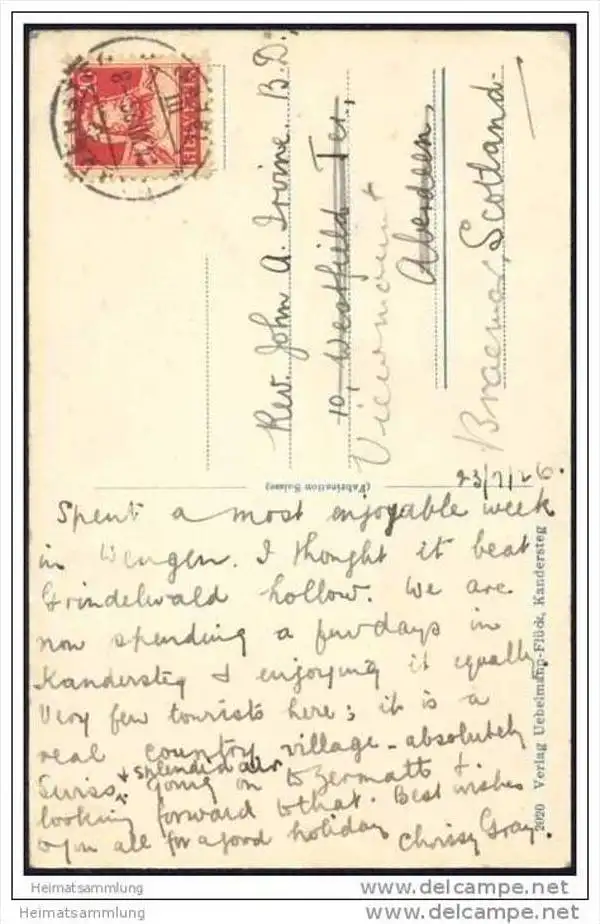 HELVETIA
Rev. John A. Irvine. B.D.,
10, Westfield Ter.,
Viewmount
Aberdeen,
Scotland.
Braemar,
(Fabrication Suisse)
23/7/26.
Spent a most enjoyable week
in Wengen. I thought it beat
Grindelwald hollow. We are
now spending a few days in
Kandersteg & enjoying it equally.
Very few tourists here; it is a
real country village - absolutely
Swiss & splendid air. Going on to Zermatt &
looking forward to that. Best wishes
to you all for a good holiday
Chrissy Gray.
2020 Verlag Uebelmann-Flück, Kandersteg
Heimatsammlung
http://www.delcampe.net
Heimatsammlung
http://www.delcampe.net